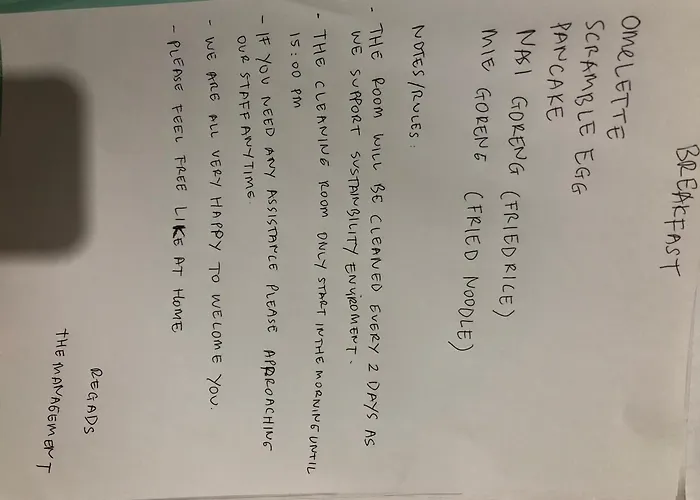 BREAKFAST
OMELETTE
SCRAMBLE EGG
PANCAKE
NASI GORENG (FRIED RICE)
MIE GORENG (FRIED NOODLE)
NOTES/RULES:
- THE ROOM WILL BE CLEANED EVERY 2 DAYS AS
WE SUPPORT SUSTAINBILITY ENVIROMENT.
- THE CLEANING ROOM ONLY START IN THE MORNING UNTIL
15:00 PM
- IF YOU NEED ANY ASSISTANCE PLEASE APPROACHING
OUR STAFF ANYTIME.
- WE ARE ALL VERY HAPPY TO WELCOME YOU.
- PLEASE FEEL FREE LIKE AT HOME
REGADS
THE MANAGEMENT